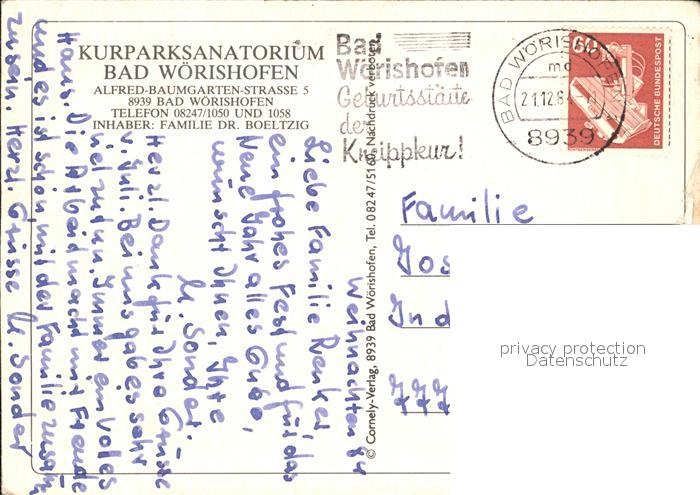 KURPARKSANATORIUM
BAD WÖRISHOFEN
ALFRED-BAUMGARTEN-STRASSE 5
8939 BAD WÖRISHOFEN
TELEFON 08247/1050 UND 1058
INHABER: FAMILIE DR. BOELTZIG
Bad
Wörishofen
Geburtsstätte
der
Kneippkur!
BAD WÖRISHOFEN
md
21.12.8
8939
60
DEUTSCHE BUNDESPOST
© Cornely-Verlag, 8939 Bad Wörishofen, Tel. 08247/5161, Nachdruck verboten
Weihnachten 84
Liebe Familie Renker,
ein frohes Fest und für das
Neue Jahr alles Gute,
wünscht Ihnen, Ihre
U. Sonder.
Herzl. Dank für Ihre Grüsse
v. Juli. Bei uns gab es sehr
viel zu tun. Immer ein volles
Haus. Die Arbeit macht mir Freude
und es ist schön, mit der Familie zusam
zu sein. Herzl. Grüsse U. Sonder
Familie
Jos
In d
777
privacy protection
Datenschutz